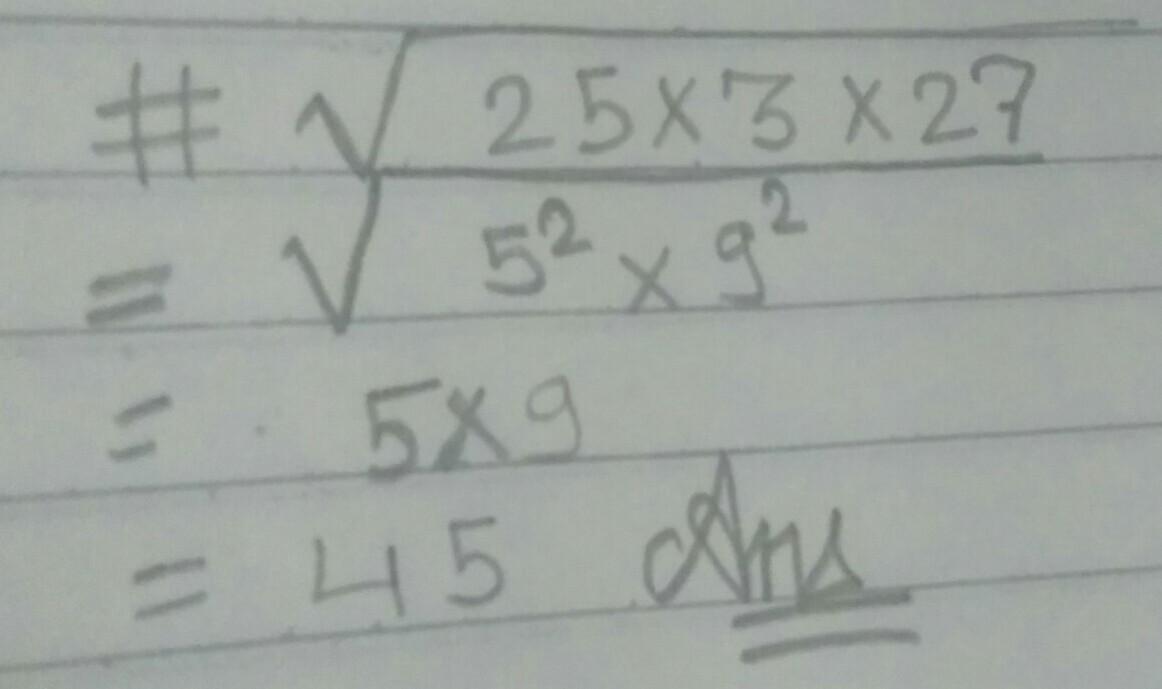 # √25×3×27
= √5²×9²
= 5×9
= 45 Ans